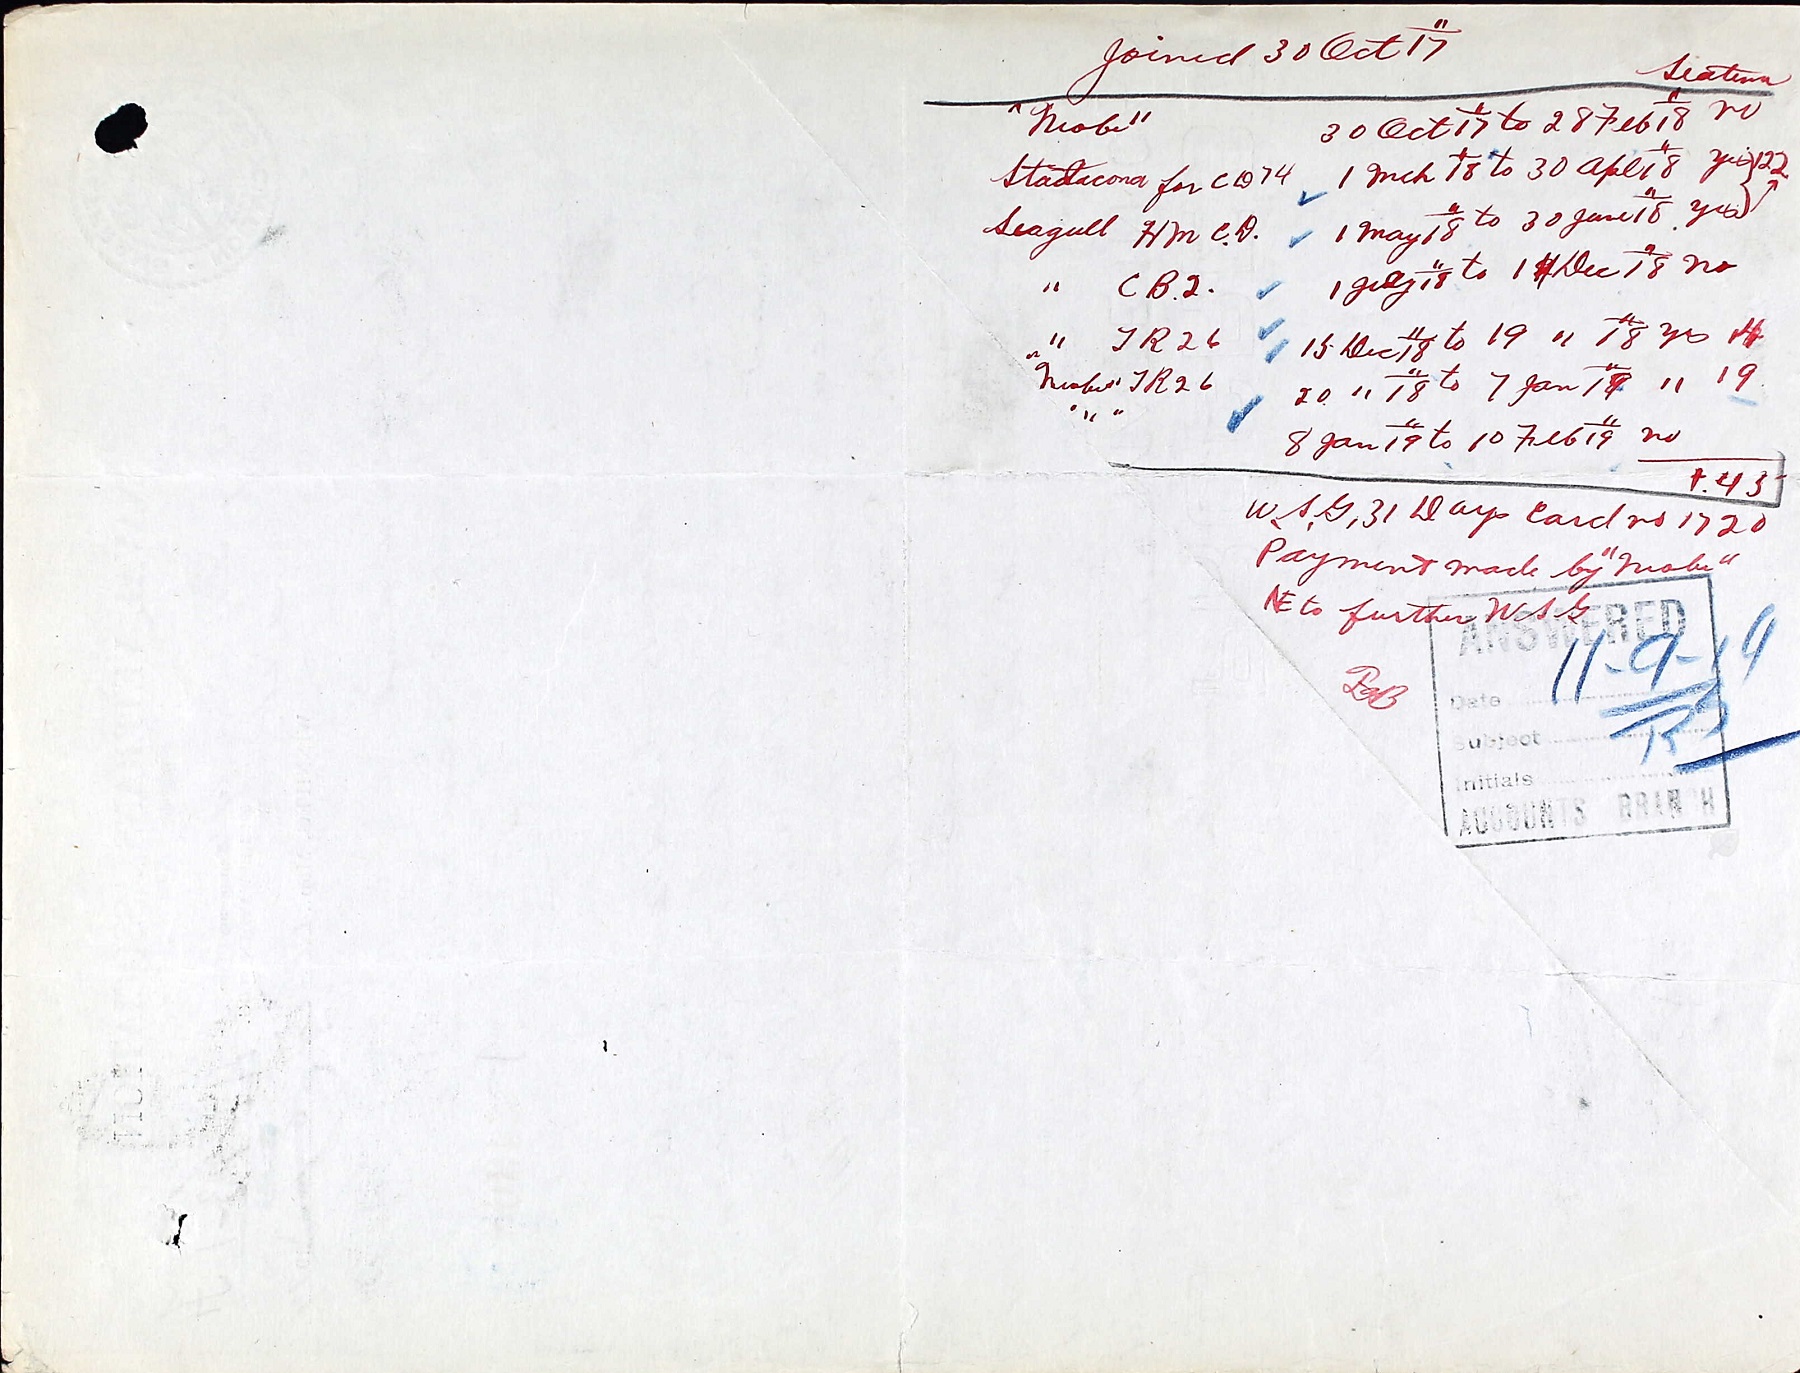 Joined 30 Oct "17
Seatime
"Niobe" 30 Oct "17 to 28 Feb "18 no
Stadacona for CD 74 1 Mch "18 to 30 Apl "18 yes } 122
Seagull HMCD. 1 May "18 to 30 June "18. yes
" CB.2. 1 July "18 to 14 Dec "18 no
" TR 26 15 Dec "18 to 19 " "18 yes
"Niobe" TR 26 20 " "18 to 7 Jan "19 " 19
" " " 8 Jan "19 to 10 Feb "19 no
W.S.G, 31 Days Card no 1720
Payment made by "Niobe"
NE to further WSG
ANSWERED
11-9-19
Date
Subject
Initials
ACCOUNTS BRANCH